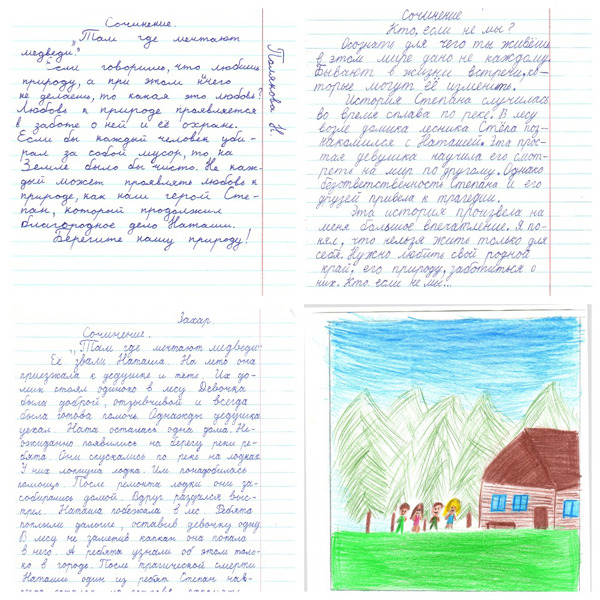 Сочинение.
„Там где мечтают
медведи."
Если говоришь, что любишь
природу, а при этом ничего
не делаешь, то какая это любовь?
Любовь к природе проявляется
в заботе о ней и её охране.
Если бы каждый человек уби-
рал за собой мусор, то на
Земле было бы чисто. Не каж-
дый может проявлять любовь к
природе, как наш герой Сте-
пан, который продолжил
благородное дело Наташи.
Берегите нашу природу!
Полякова К.
Сочинение
Кто, если не мы?
Осознать для чего ты живёшь
в этом мире дано не каждому.
Бывают в жизни встречи, ко-
торые могут её изменить.
История Степана случилась
во время сплава по реке. В лесу
возле домика лесника Стёпа поз-
накомился с Наташей. Эта прос-
тая девушка научила его смот-
реть на мир по другому. Однако
безответственность Степана и его
друзей привела к трагедии.
Эта история произвела на
меня большое впечатление. Я по-
нял, что нельзя жить только для
себя. Нужно любить свой родной
край, его природу, заботиться о
них. Кто если не мы!..
Захар.
Сочинение.
„Там где мечтают медведи"
Её звали Наташа. На лето она
приезжала к дедушке и тёте. Их до-
мик стоял одиноко в лесу. Девочка
была доброй, отзывчивой и всегда
была готова помочь. Однажды дедушка
уехал. Ната осталась одна дома. Не-
ожиданно появились на берегу реки ре-
бята. Они спускались по реке на лодках.
У них лопнула лодка. Им понадобилась
помощь. После ремонта лодки они за-
собирались домой. Вдруг раздался выс-
трел. Наташа побежала в лес. Ребята
поплыли дальше, оставив девочку одну.
В лесу не заметив капкан она попала
в него. А ребята узнали об этом толь-
ко в городе. После трагической смерти
Наташи один из ребят Степан нав-